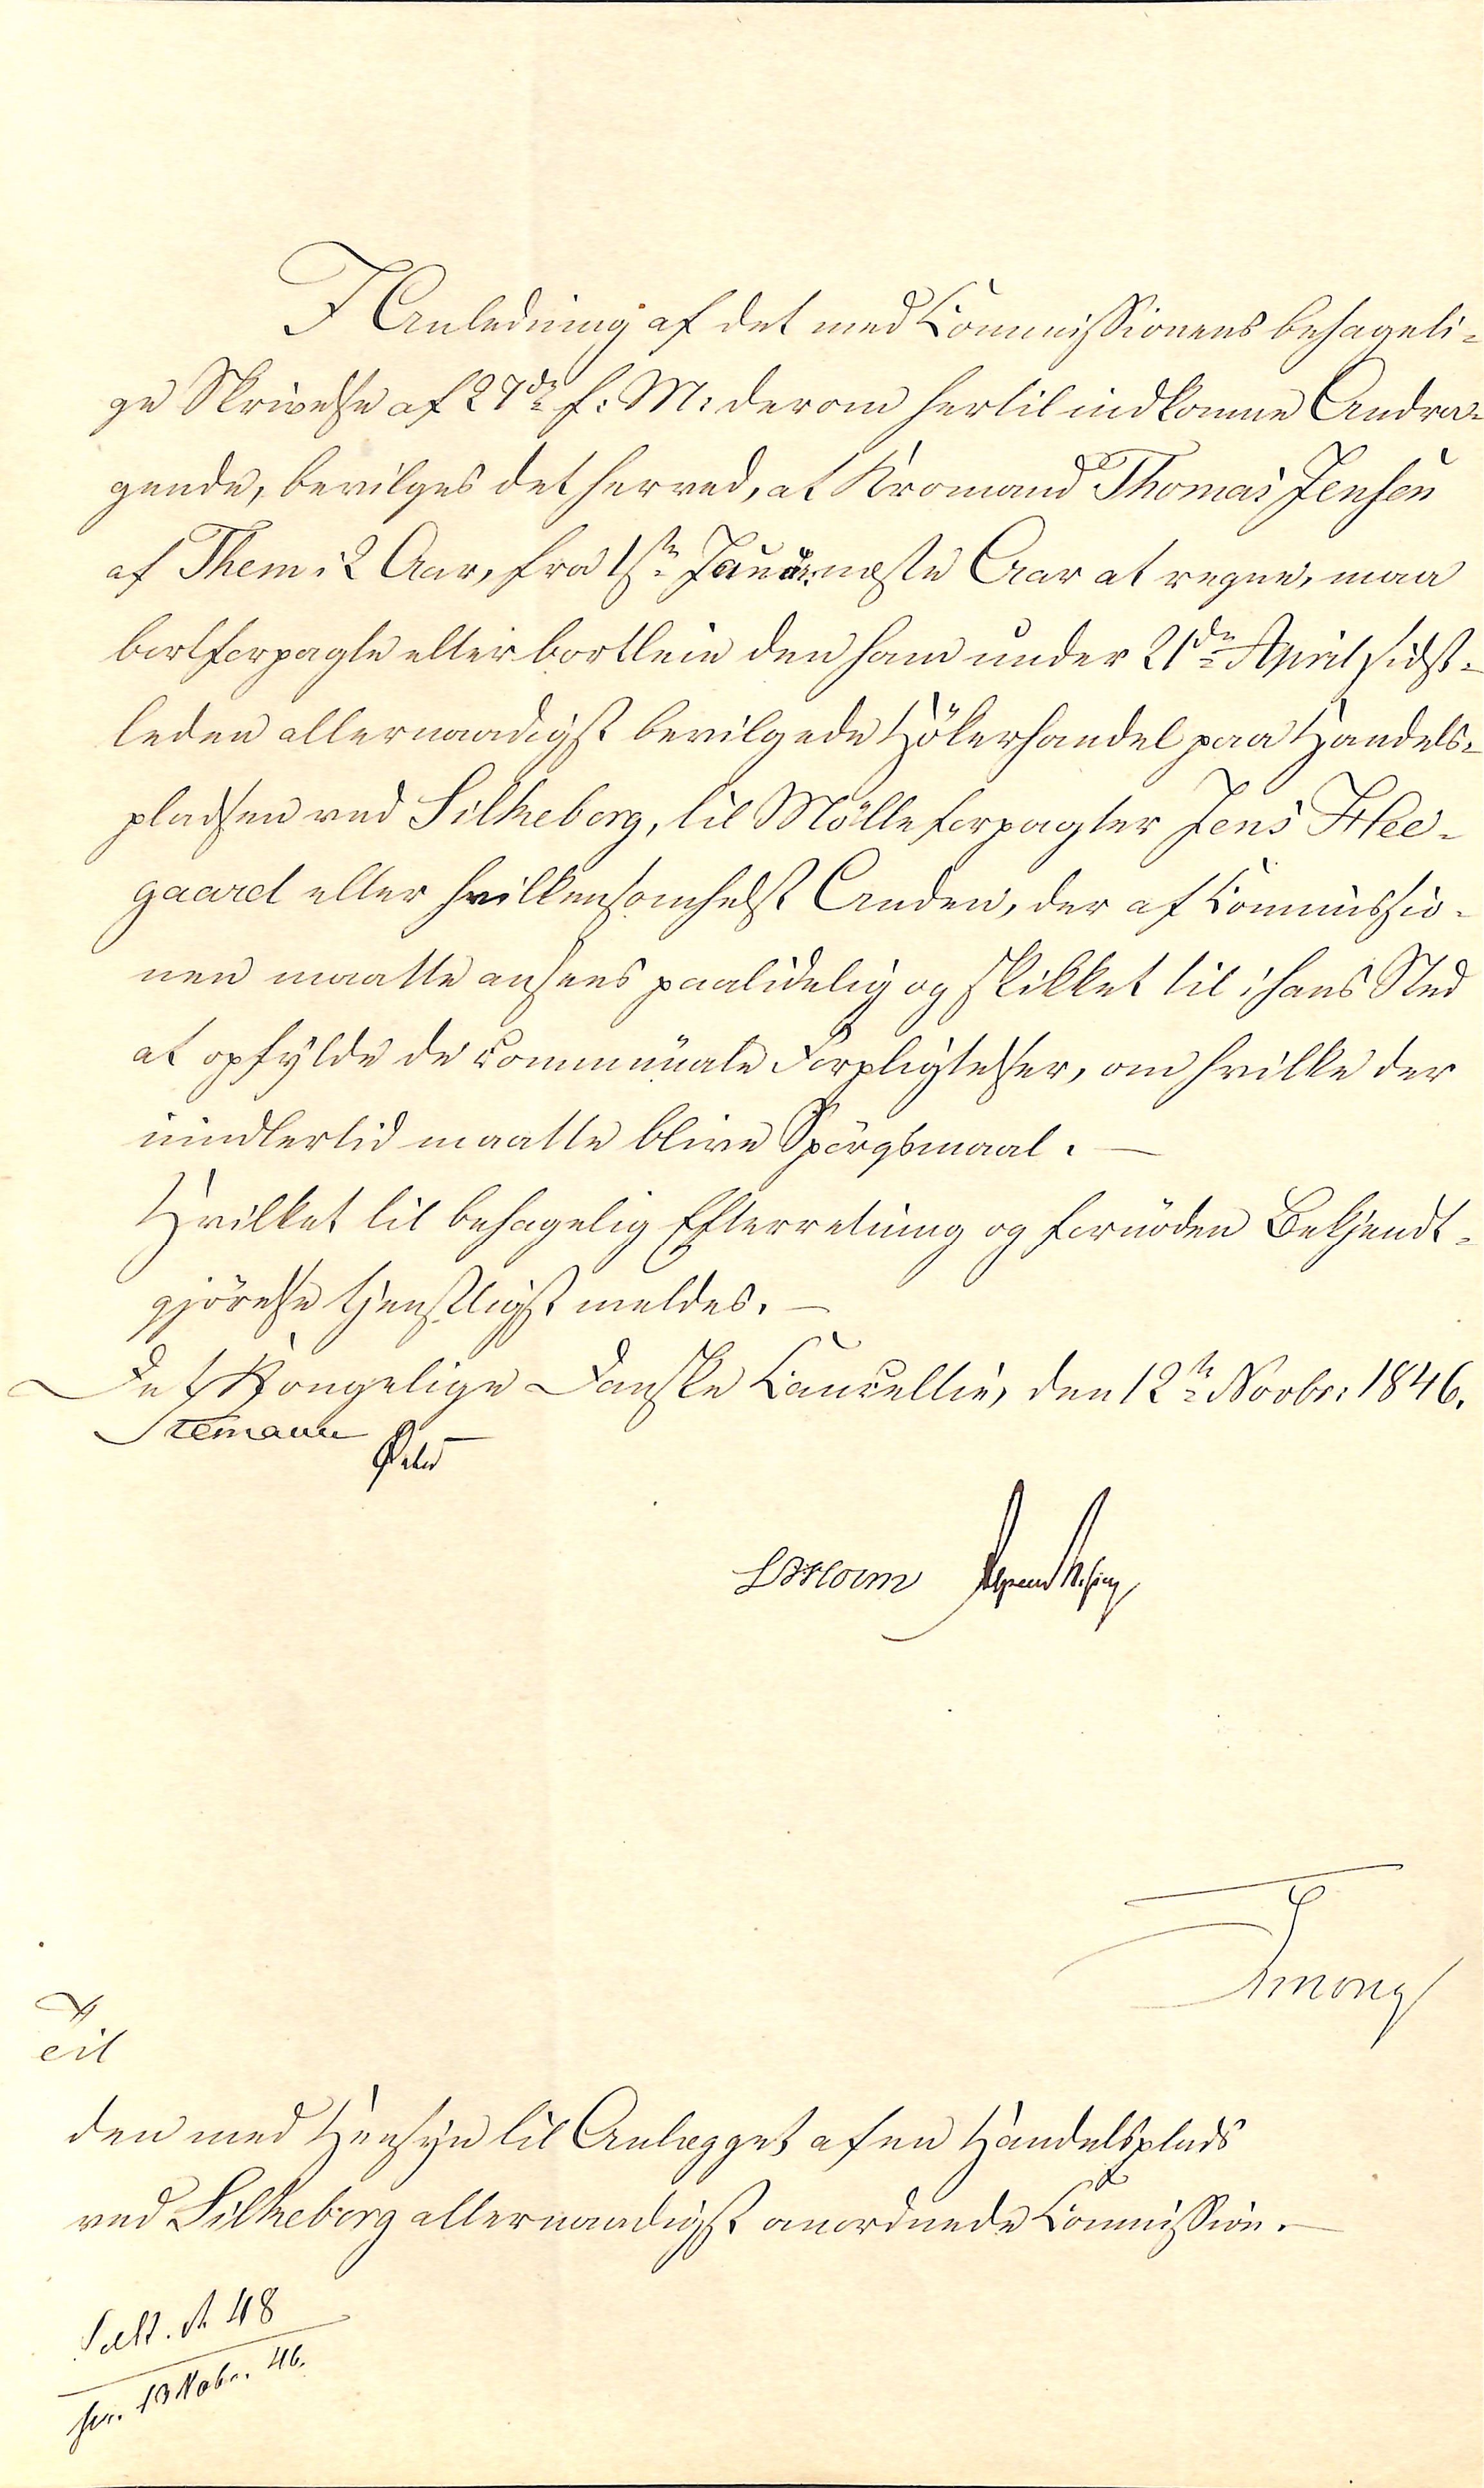 I Anledning af det med Commissionens behageli-
ge Skrivelse af 27de f: M: derom hertil indkomne Andra-
gende, bevilges det herved, at Kromand Thomas Jensen
af Them i 2 Aar, fra 1ste Januar næste Aar at regne, maa
bortforpagte eller bortleie den ham under 21de April sidst-
leden allernaadigst bevilgede Hökerhandel paa Handels-
pladsen ved Silkeborg, til Mölleforpagter Jens Hee-
gaard eller hvilkensomhelst Anden, der af Commissio-
nen maatte ansees paalidelig og skikket til i hans Sted
at opfylde de communale Forpligtelser, om hvilke der
imidlertid maatte blive Spörgsmaal. —
Hvilket til behagelig Efterretning og fornöden Bekjendt-
gjörelse tjenstligst meldes. —
Det Kongelige Danske Cancellie, den 12te Novbr: 1846.
Stemann
Til
den med Hensyn til Anlægget af en Handelsplads
ved Silkeborg allernaadigst anordnede Commission. —
48
13 Novbr. 46.